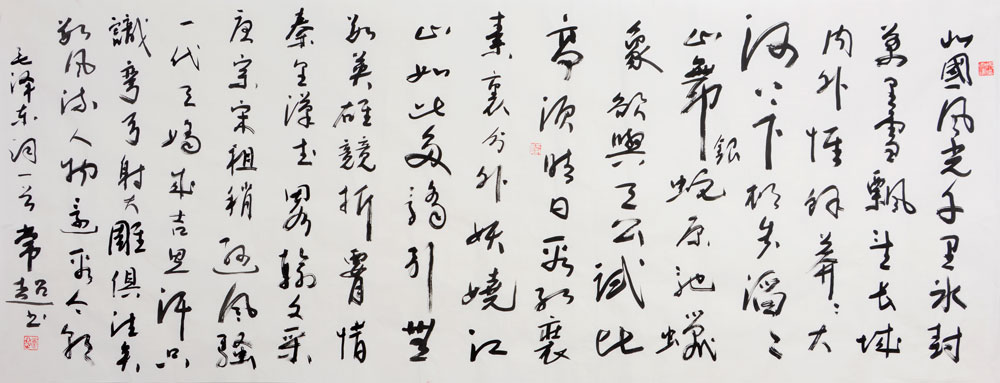 北國風光千里冰封
萬里雪飄望長城
內外惟餘莽々大
河上下頓失滔々
山舞銀蛇原馳蠟
象欲與天公試比
高須晴日看紅裝
素裹分外妖嬈江
山如此多驕引無
數英雄競折腰惜
秦皇漢武略輸文采
唐宗宋祖稍遜風騷
一代天嬌成吉思汗只
識彎弓射大雕俱往矣
數風流人物還看今朝
毛泽东词一首 常超书